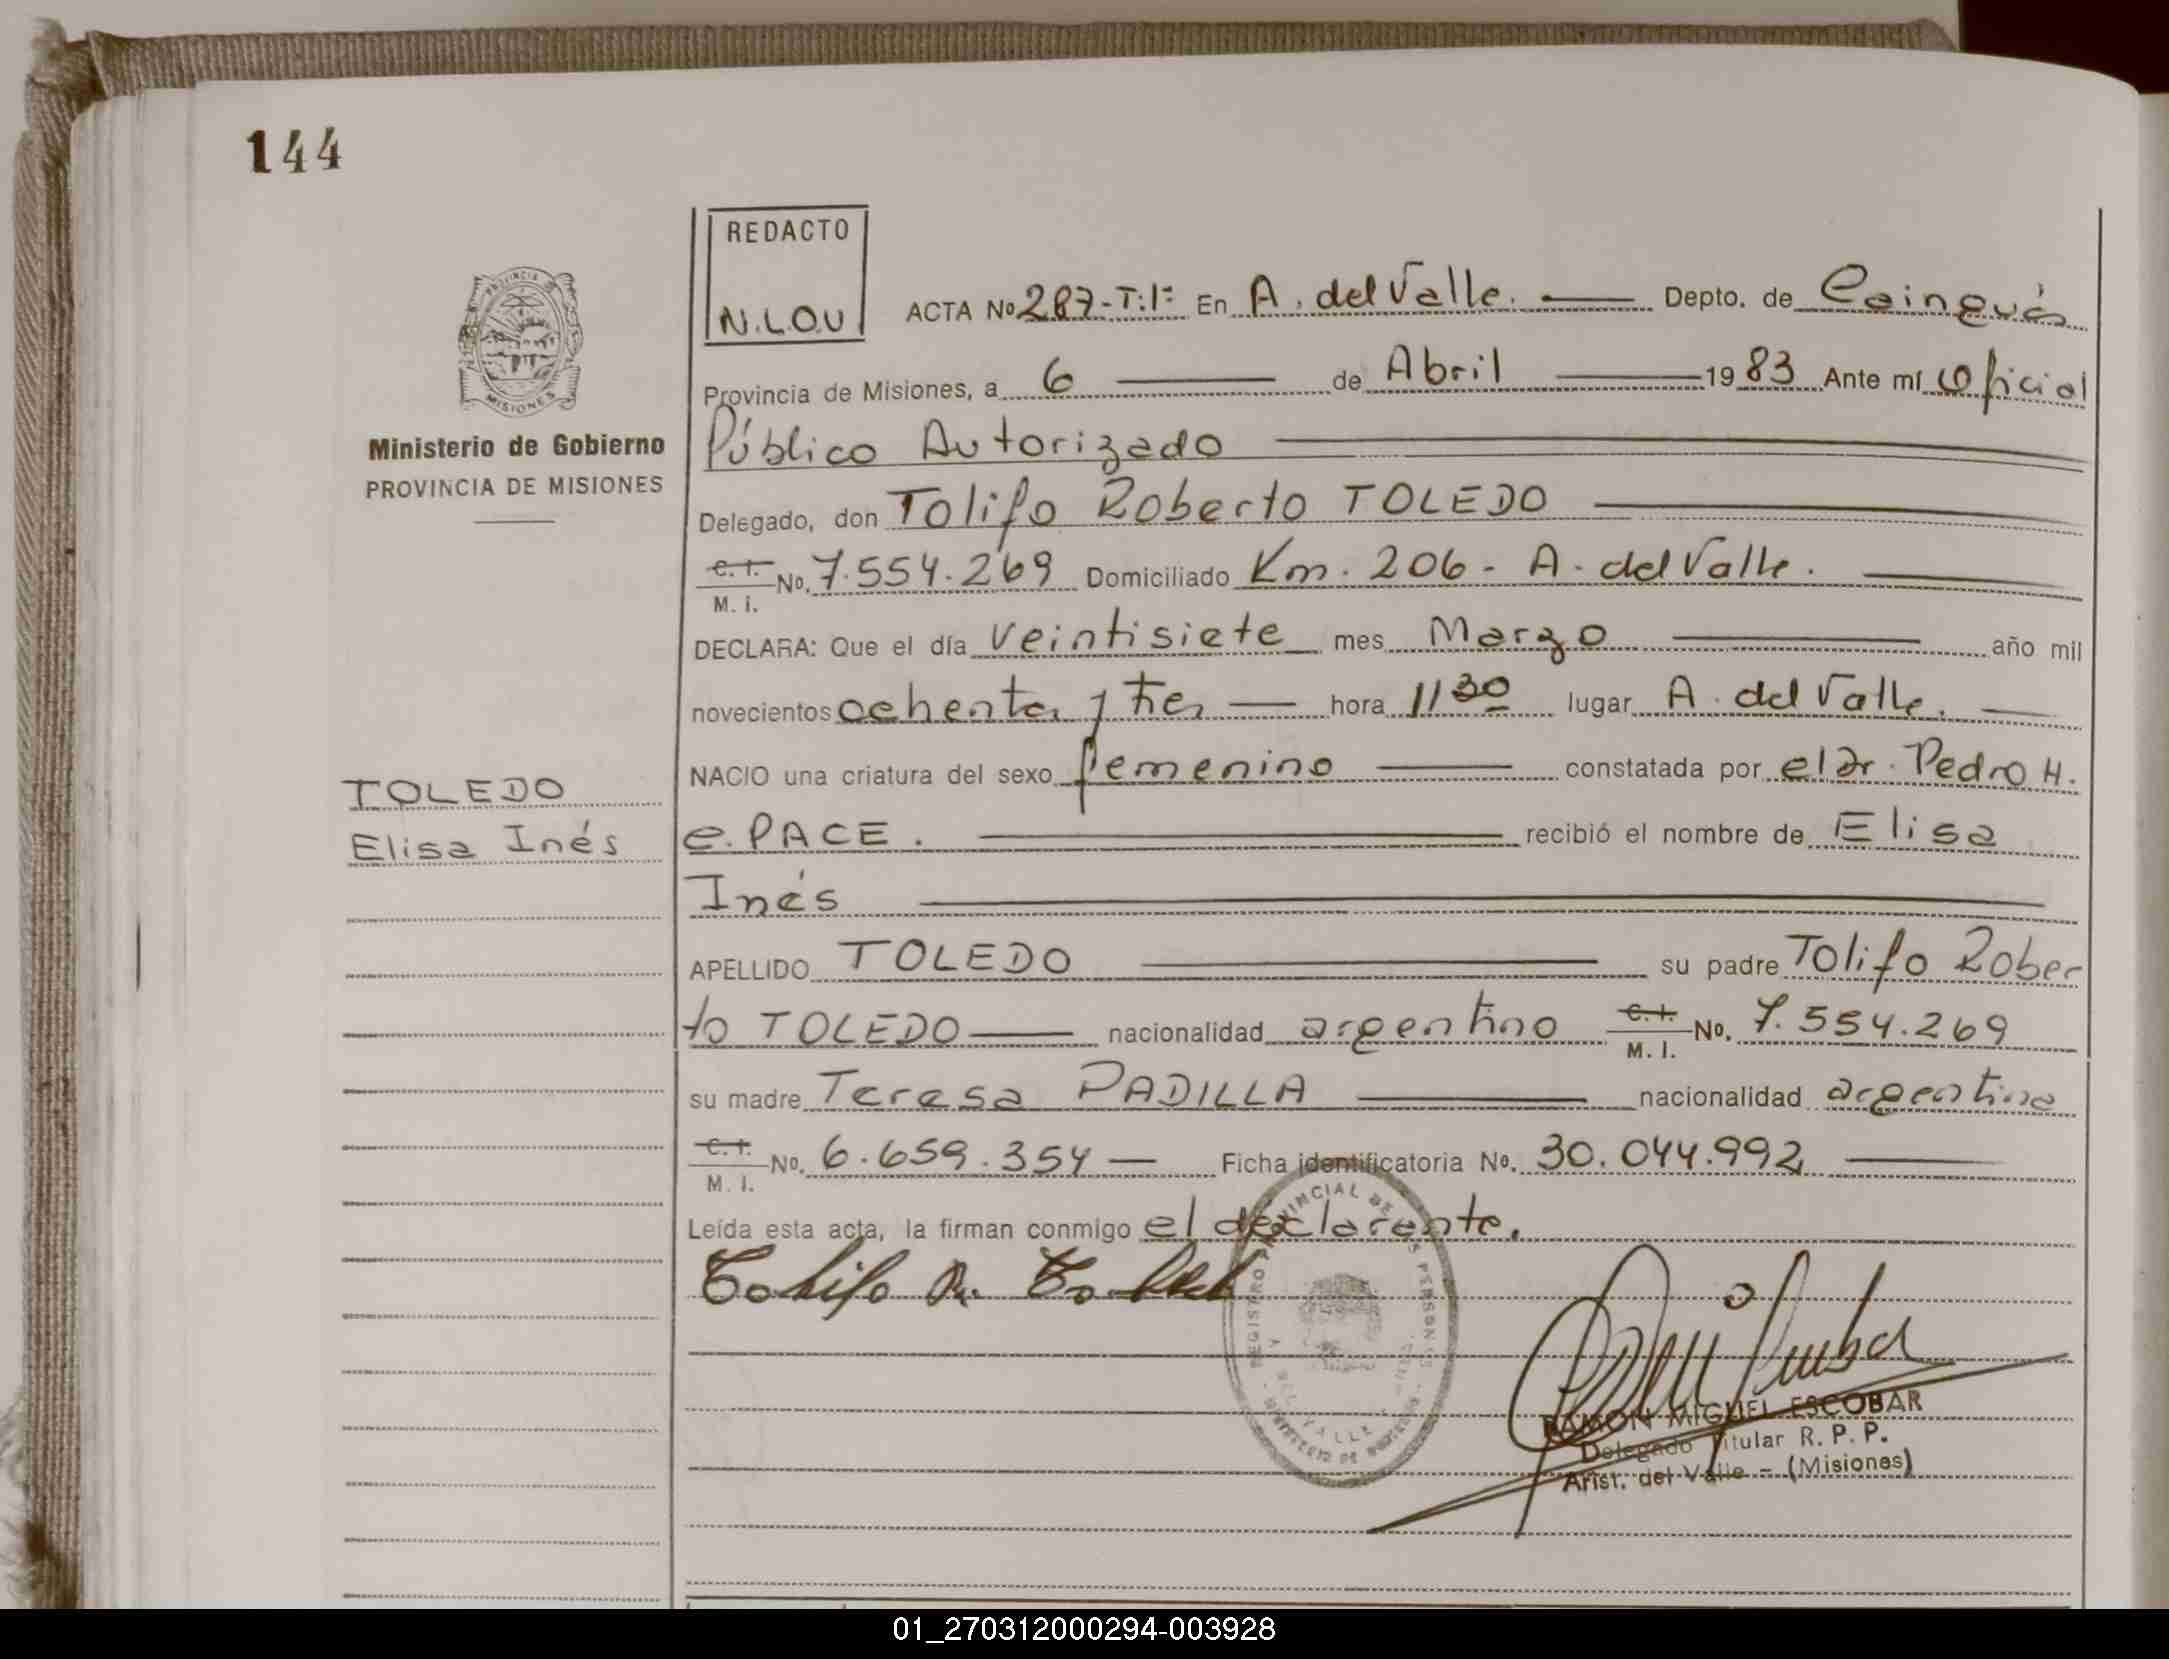 144
REDACTO
N.L.O.U
PROVINCIA DE
MISIONES
Ministerio de Gobierno
PROVINCIA DE MISIONES
ACTA Nº 287-T:1º En A. del Valle. Depto. de Cainguás
Provincia de Misiones, a 6 de Abril 1983 Ante mí Oficial
Público Autorizado
Delegado, don Tolifo Roberto TOLEDO
C. I. M. I. No. 7.554.269 Domiciliado Km. 206 - A. del Valle.
DECLARA: Que el día veintisiete mes Marzo año mil
novecientos ochenta y tres hora 11 30 lugar A. del Valle.
NACIO una criatura del sexo femenino constatada por el Dr. Pedro H.
TOLEDO
Elisa Inés
e. PACE. recibió el nombre de Elisa
Inés
APELLIDO TOLEDO su padre Tolifo Rober
to TOLEDO nacionalidad argentino C. I. M. I. No. 7.554.269
su madre Teresa PADILLA nacionalidad argentina
C. I. M. I. No. 6.659.354 Ficha identificatoria No. 30.044.992
Leída esta acta, la firman conmigo el declarante.
Tolifo R. Toledo
REGISTRO PROVINCIAL DE LAS PERSONAS
RAMON MIGUEL ESCOBAR
Delegado Titular R. P. P.
Arist. del Valle - (Misiones)
01_270312000294-003928